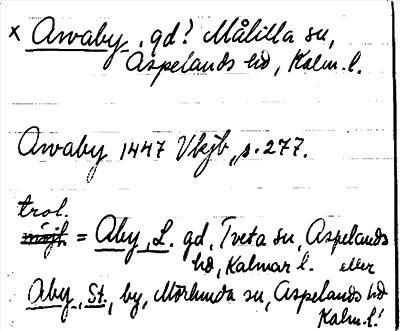 x Awaby, gd? Målilla sn,
Aspelands hd, Kalm. l.
Awaby 1447 Vkjb, s. 277.
trol.
möjl. = Åby, L. gd, Tveta sn, Aspelands
hd, Kalmar l. eller
Åby, St., by, Mörlunda sn, Aspelands hd
Kalm. l.!